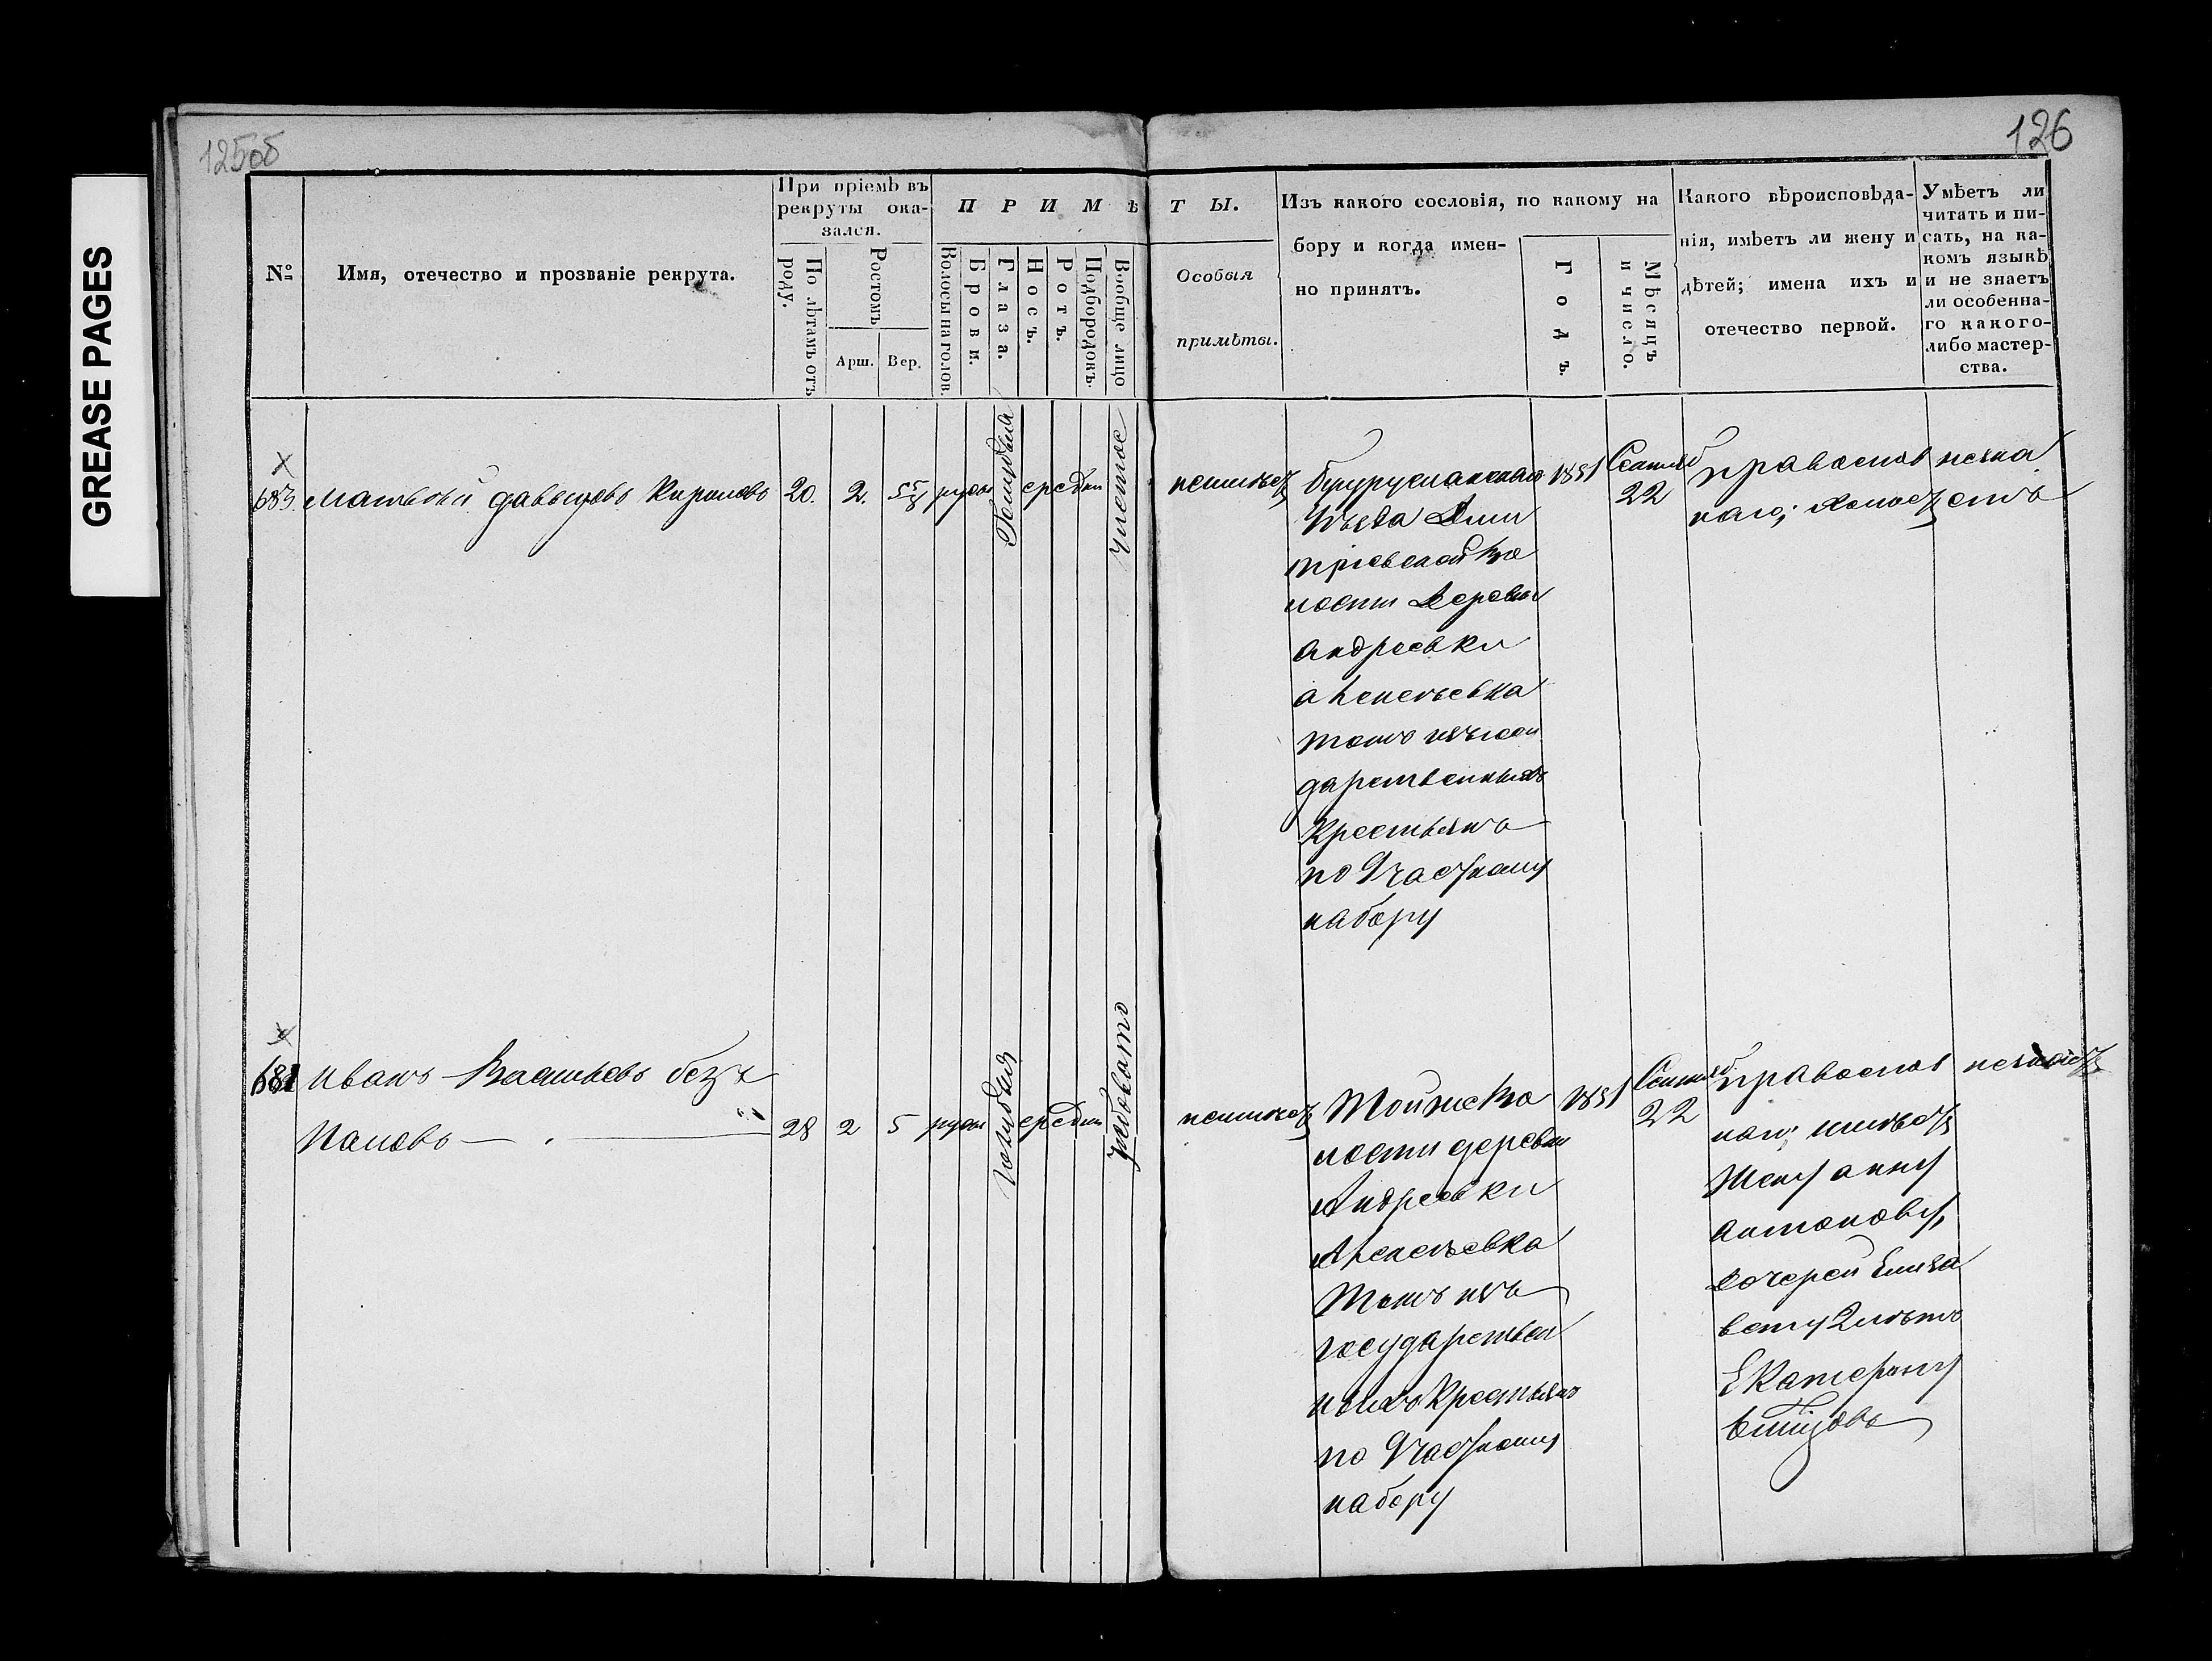 GREASE PAGES
125об
126
№
Имя, отечество и прозваніе рекрута.
При пріемѣ въ
рекруты ока-
зался.
По лѣтамъ отъ
роду.
Ростомъ
Арш.
Вер.
ПРИМѢТЫ.
Волосы на голов.
Брови.
Глаза.
Носъ.
Ротъ.
Подбородокъ.
Вообще лицо
Особыя
примѣты.
Изъ какого сословія, по какому на
бору и когда имен-
но принятъ.
Годъ.
Мѣсяцъ
и число.
Какого вѣроисповѣда-
нія, имѣетъ ли жену и
дѣтей; имена ихъ и
отечество первой.
Умѣетъ ли
читать и пи-
сать, на ка-
комъ языкѣ
и не знаетъ
ли особенна-
го какого-
либо мастер-
ства.
Матвѣй Давыдовъ Кириловъ
20.
2.
русы
Голубыя
средни
чистое
неимѣетъ
Бугурусланскаго
Уѣзда Дми
тріевской Во
лости Деревни
Андреевки
Аксентьевка
тожъ изъ госу
дарственныхъ
Крестьянъ
по Участному
набору
1851
Сентяб
22
православ
наго; холостъ
Иванъ Васильевъ безъ
паловъ
28
2
5
русы
Голубыя
средни
рябовато
неимѣетъ
Той же Во
лости деревни
Андреевки
Аксентьевка
Тожъ изъ
государствен
ныхъ Крестьянъ
по Участному
набору
1851
Сентяб.
22
православ
наго; имѣетъ
Жену Анну
Антонову,
дочерей Елиза
вету 2 лѣтъ
Екатерину